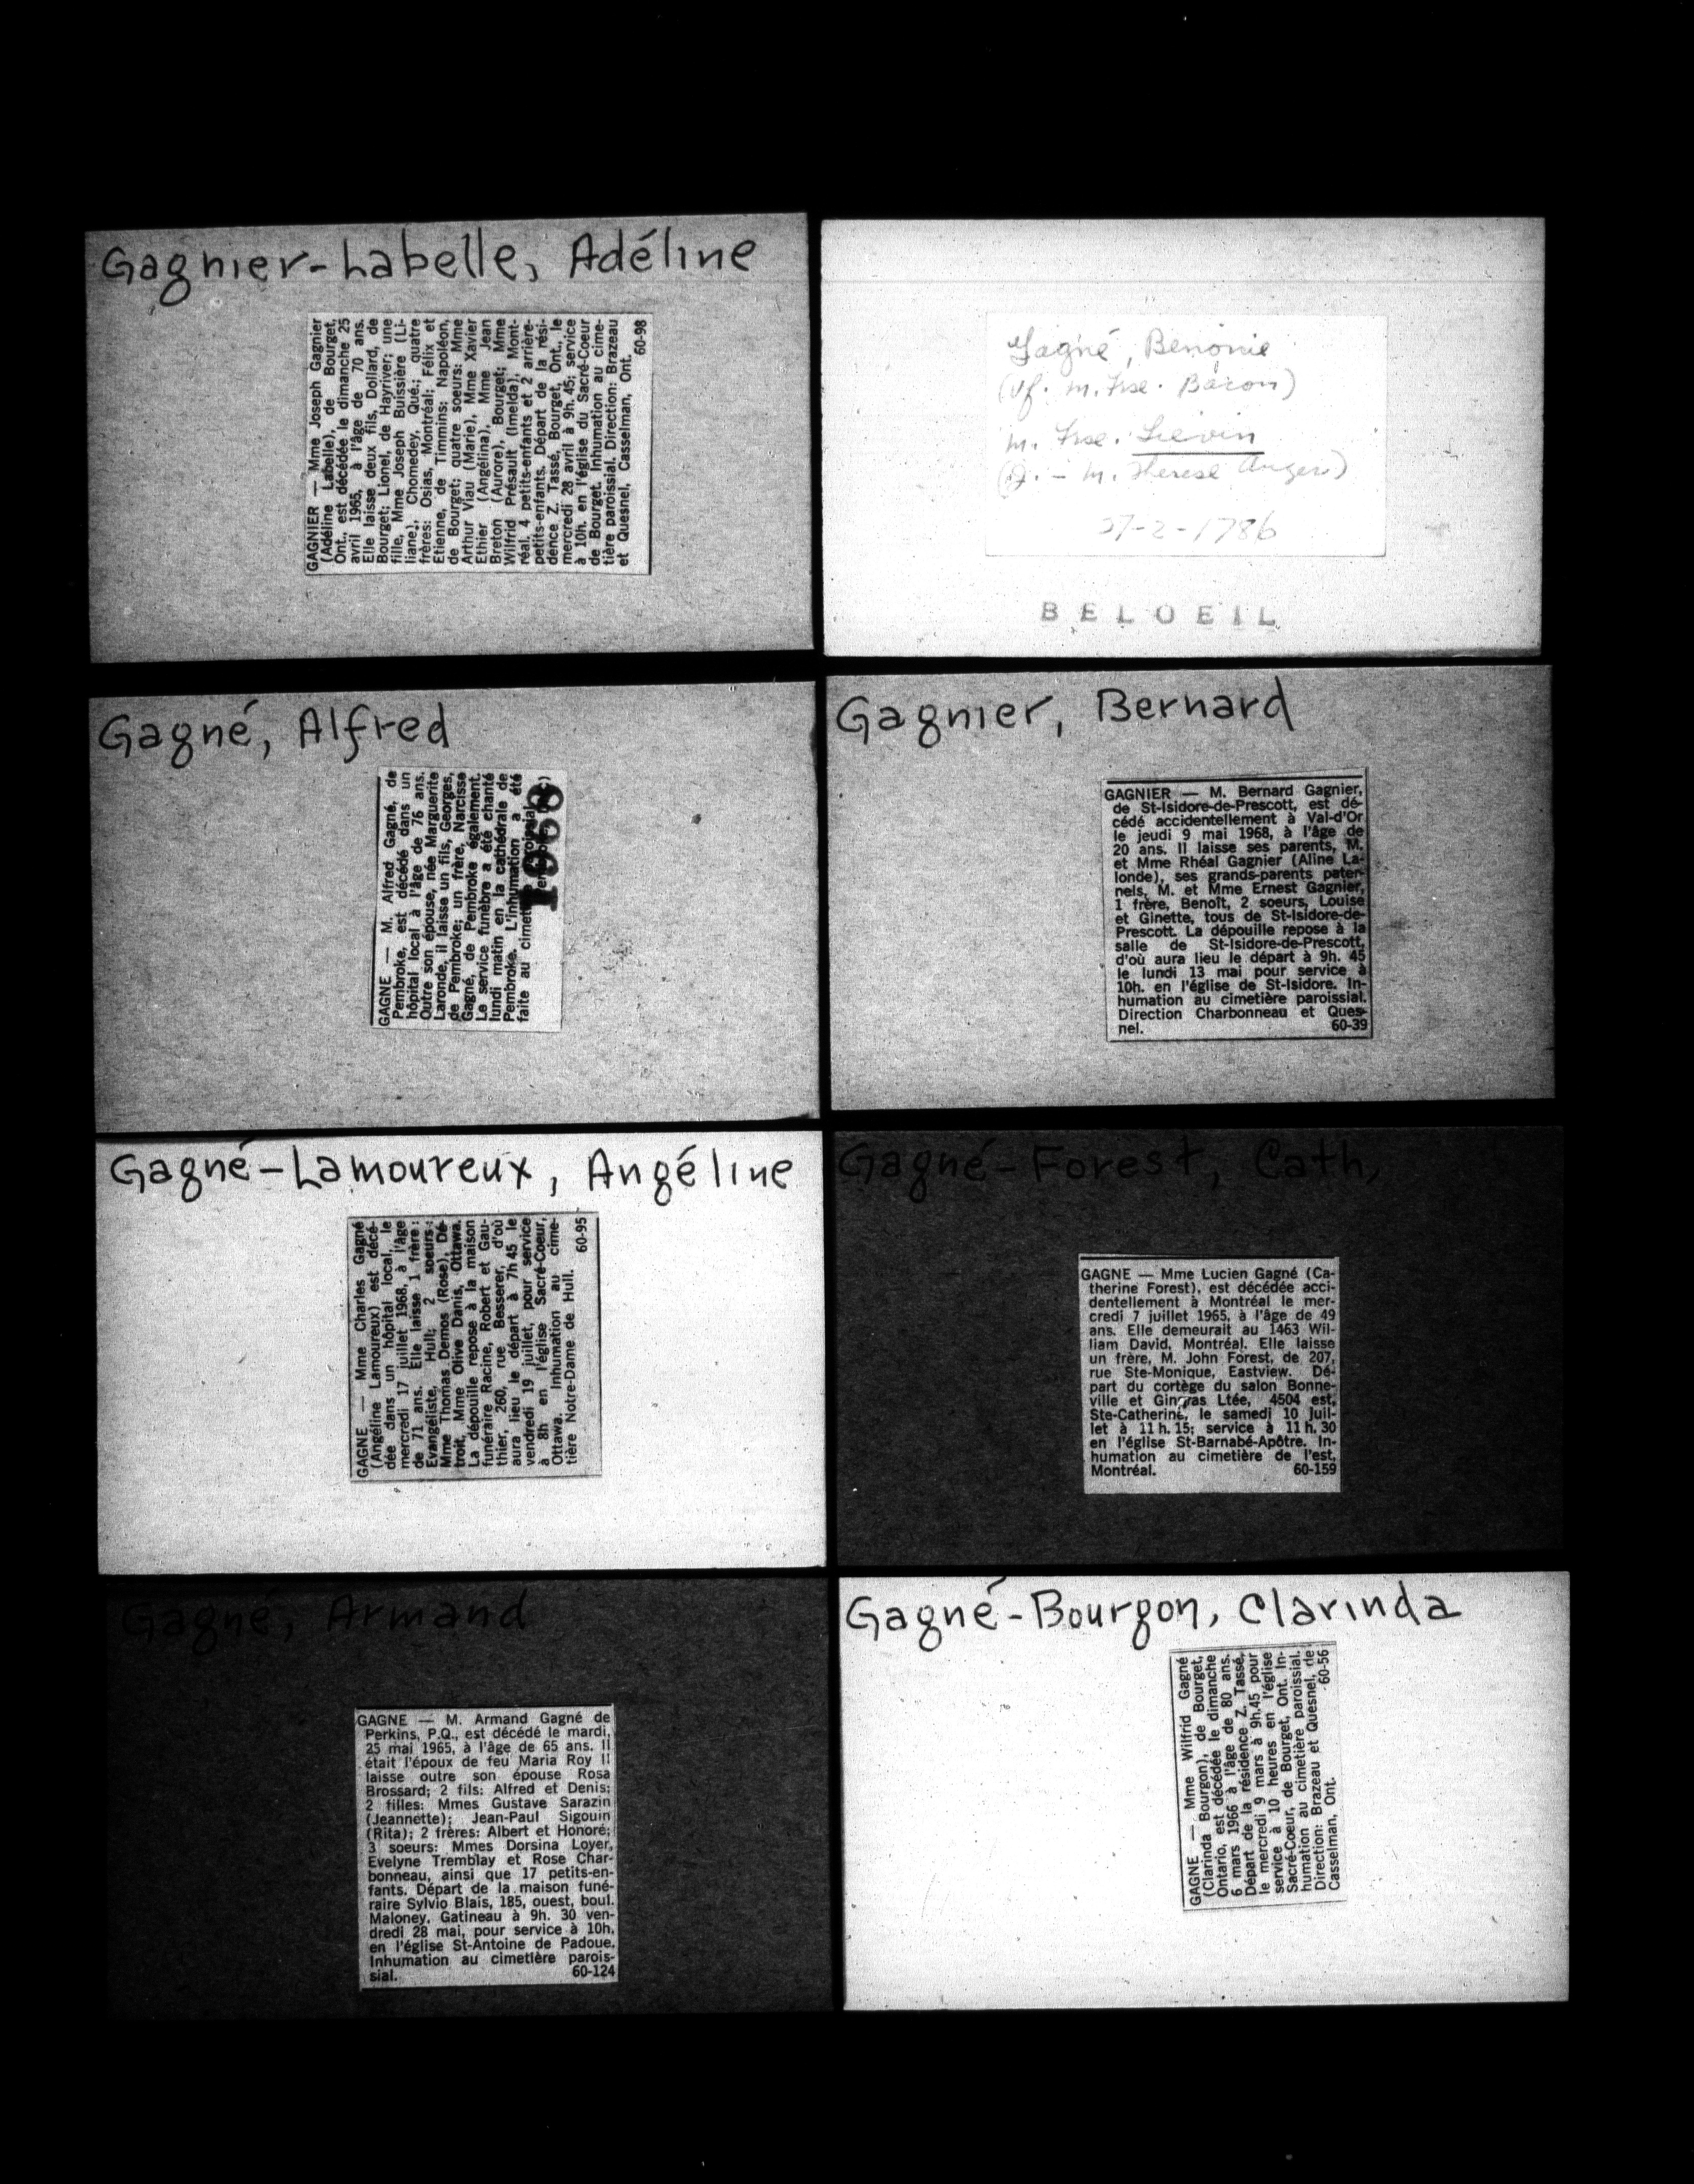 Gagnier-Labelle, Adéline
GAGNIER — Mme Joseph Gagnier
(Adéline Labelle), de Bourget,
Ont., est décédée le dimanche 25
avril 1965, à l'âge de 70 ans.
Elle laisse deux fils, Dollard, de
Bourget; Lionel, de Hayriver; une
fille, Mme Joseph Buissière (Li-
liane), Chomedey, Qué.; quatre
frères: Osias, Montréal; Félix et
Etienne, de Timmins; Napoléon,
de Bourget; quatre soeurs: Mme
Arthur Viau (Marie), Mme Xavier
Ethier (Angélina), Mme Jean
Breton (Aurore), Bourget; Mme
Wilfrid Présault (Imelda), Mont-
réal, 4 petits-enfants et 2 arrière-
petits-enfants. Départ de la rési-
dence Z. Tassé, Bourget, Ont., le
mercredi 28 avril à 9h. 45; service
à 10h. en l'église du Sacré-Coeur
de Bourget. Inhumation au cime-
tière paroissial. Direction: Brazeau
et Quesnel, Casselman, Ont.
60-98
Gagné, Benonie
(Vf. m. Frse. Bacon)
m. Frse. Lievin
(J. - m. Therese Angers)
27-2-1786
BELOEIL
Gagné, Alfred
GAGNE — M. Alfred Gagné, de
Pembroke, est décédé dans un
hôpital local à l'âge de 76 ans.
Outre son épouse, née Marguerite
Laronde, il laisse un fils, Georges,
de Pembroke; un frère, Narcisse
Gagné, de Pembroke également.
Le service funèbre a été chanté
lundi matin en la cathédrale de
Pembroke. L'inhumation a été
faite au cimetière paroissial.
1968
Gagnier, Bernard
GAGNIER — M. Bernard Gagnier,
de St-Isidore-de-Prescott, est dé-
cédé accidentellement à Val-d'Or
le jeudi 9 mai 1968, à l'âge de
20 ans. Il laisse ses parents, M.
et Mme Rhéal Gagnier (Aline La-
londe), ses grands-parents pater-
nels, M. et Mme Ernest Gagnier,
1 frère, Benoît, 2 soeurs, Louise
et Ginette, tous de St-Isidore-de-
Prescott. La dépouille repose à la
salle de St-Isidore-de-Prescott,
d'où aura lieu le départ à 9h. 45
le lundi 13 mai pour service à
10h. en l'église de St-Isidore. In-
humation au cimetière paroissial.
Direction Charbonneau et Ques-
nel. 60-39
Gagné-Lamoureux, Angéline
GAGNE — Mme Charles Gagné
(Angéline Lamoureux) est décé-
dée dans un hôpital local, le
mercredi 17 juillet 1968, à l'âge
de 71 ans. Elle laisse 1 frère:
Evangéliste, Hull; 2 soeurs:
Mme Thomas Demos (Rose), Dé-
troit, Mme Olive Danis, Ottawa.
La dépouille repose à la maison
funéraire Racine, Robert et Gau-
thier, 260, rue Besserer, d'où
aura lieu le départ à 7h 45 le
vendredi 19 juillet, pour service
à 8h en l'église Sacré-Coeur,
Ottawa. Inhumation au cime-
tière Notre-Dame de Hull. 60-95
Gagné-Forest, Cath,
GAGNE — Mme Lucien Gagné (Ca-
therine Forest), est décédée acci-
dentellement à Montréal le mer-
credi 7 juillet 1965, à l'âge de 49
ans. Elle demeurait au 1463 Wil-
liam David, Montréal. Elle laisse
un frère, M. John Forest, de 207,
rue Ste-Monique, Eastview. Dé-
part du cortège du salon Bonne-
ville et Gingras Ltée, 4504 est,
Ste-Catherine, le samedi 10 juil-
let à 11 h. 15; service à 11 h. 30
en l'église St-Barnabé-Apôtre. In-
humation au cimetière de l'est,
Montréal. 60-159
Gagné, Armand
GAGNE — M. Armand Gagné de
Perkins, P.Q., est décédé le mardi,
25 mai 1965, à l'âge de 65 ans. Il
était l'époux de feu Maria Roy Il
laisse outre son épouse Rosa
Brossard; 2 fils: Alfred et Denis;
2 filles: Mmes Gustave Sarazin
(Jeannette); Jean-Paul Sigouin
(Rita); 2 frères: Albert et Honoré;
3 soeurs: Mmes Dorsina Loyer,
Evelyne Tremblay et Rose Char-
bonneau, ainsi que 17 petits-en-
fants. Départ de la maison funé-
raire Sylvio Blais, 185, ouest, boul.
Maloney, Gatineau à 9h. 30 ven-
dredi 28 mai, pour service à 10h.
en l'église St-Antoine de Padoue.
Inhumation au cimetière parois-
sial. 60-124
Gagné-Bourgon, Clarinda
GAGNE — Mme Wilfrid Gagné
(Clarinda Bourgon), de Bourget,
Ontario, est décédée le dimanche
6 mars 1966 à l'âge de 80 ans.
Départ de la résidence Z. Tassé,
le mercredi 9 mars à 9h.45 pour
service à 10 heures en l'église
Sacré-Coeur, de Bourget, Ont. In-
humation au cimetière paroissial.
Direction: Brazeau et Quesnel, de
Casselman, Ont. 60-56